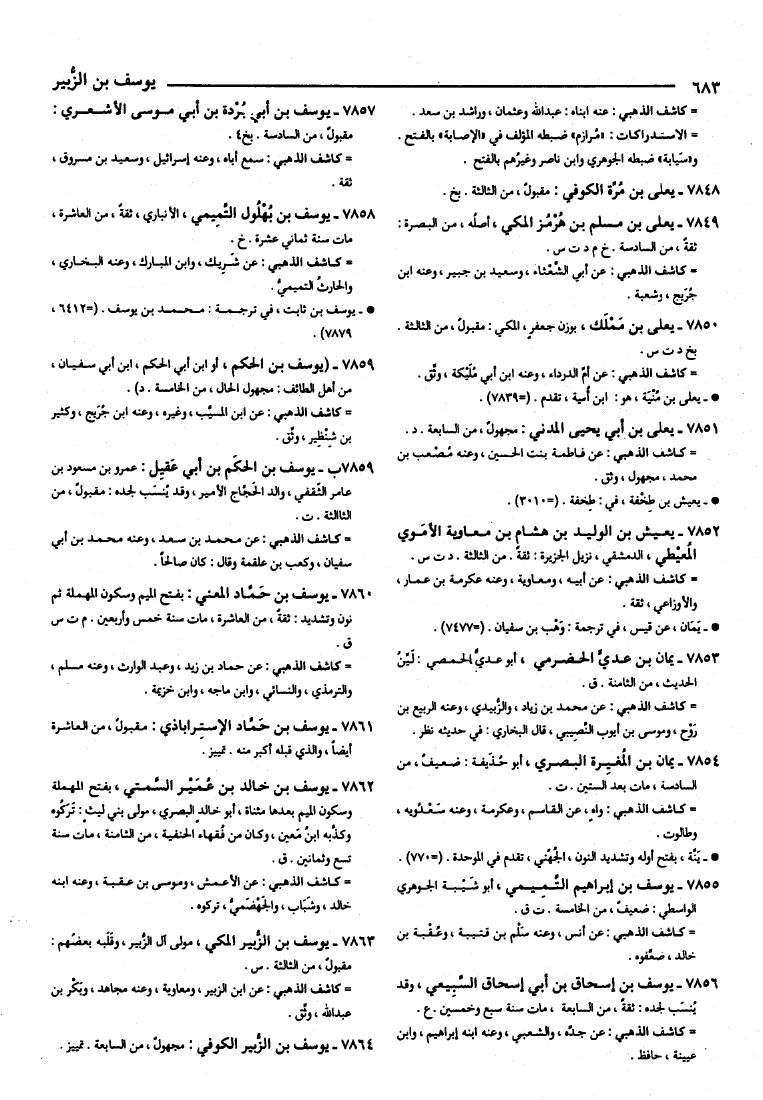 ٦٨٣ يوسف بن الزُّبير
= كاشف الذهبي : عنه ابناه : عبدالله وعثمان ، وراشد بن سعد .
= الاستدراكات : «مُرازم» ضبطه المؤلف في «الإصابة» بالفتح .
و«سَيَابة» ضبطه الجوهري وابن ناصر وغيرُهم بالفتح .
٧٨٤٨ - يعلى بن مُرَّة الكوفي : مقبولٌ ، من الثالثة . بخ .
٧٨٤٩ - يعلى بن مسلم بن هُرْمُز المكي ، أصلُه ، من البصرة :
ثقةٌ ، من السادسة . خ م د ت س .
= كاشف الذهبي : عن أبي الشَّعْثاء ، وسعيد بن جبير ، وعنه ابن
جُرَيج ، وشعبة .
٧٨٥٠ - يعلى بن مَمْلَك ، بوزن جعفرٍ ، المكي : مقبولٌ ، من الثالثة .
بخ د ت س .
= كاشف الذهبي : عن أمّ الدرداء ، وعنه ابن أبي مُلَيْكة ، وثّق .
● - يعلى بن مُنْيَة ، هو : ابن أُمية ، تقدم . (=٧٨٣٩) .
٧٨٥١ - يعلى بن أبي يحيى المدني : مجهولٌ ، من السابعة . د .
= كاشف الذهبي : عن فاطمة بنت الحسين ، وعنه مُصْعَب بن
محمد ، مجهول ، وثق .
● - يعيش بن طِخْفة ، في : طِخفة . (=٣٠١٠) .
٧٨٥٢ - يعيش بن الوليد بن هشام بن معاوية الأموي
المُعَيْطي ، الدمشقي ، نزيل الجزيرة : ثقةٌ . من الثالثة . د ت س .
= كاشف الذهبي : عن أبيه ، ومعاوية ، وعنه عكرمة بن عمار ،
والأوزاعي ، ثقة .
● - يَمَان ، عن قيس ، في ترجمة : وَهْب بن سفيان . (=٧٤٧٧) .
٧٨٥٣ - يمان بن عديٍّ الحضرمي ، أبو عديٍّ الحمصي : لَيِّنُ
الحديث ، من الثامنة . ق .
= كاشف الذهبي : عن محمد بن زياد ، والزُّبيدي ، وعنه الربيع بن
رَوْح ، وموسى بن أيوب النَّصِيبي ، قال البخاري : في حديثه نظر .
٧٨٥٤ - يمان بن المُغيرة البصري ، أبو حُذَيفة : ضعيفٌ ، من
السادسة ، مات بعد الستين . ت .
= كاشف الذهبي : واهٍ ، عن القاسم ، وعكرمة ، وعنه سَعْدُويه ،
وطالوت .
● - يَنَّة ، بفتح أوله وتشديد النون ، الجُهَني ، تقدم في الموحدة . (=٧٧٠) .
٧٨٥٥ - يوسف بن إبراهيم التَّميمي ، أبو شَيْبة الجوهري
الواسطي : ضعيفٌ ، من الخامسة . ت ق .
= كاشف الذهبي : عن أنس ، وعنه سَلْم بن قتيبة ، وعُقْبة بن
خالد ، ضعّفوه .
٧٨٥٦ - يوسف بن إسحاق بن أبي إسحاق السَّبيعي ، وقد
يُنسَب لجده : ثقةٌ ، من السابعة ، مات سنة سبع وخمسين . ع .
= كاشف الذهبي : عن جدّه ، والشعبي ، وعنه ابنه إبراهيم ، وابن
عيينة ، حافظ .
٧٨٥٧ - يوسف بن أبي بُرْدة بن أبي موسى الأشعري :
مقبولٌ ، من السادسة . بخ٤ .
= كاشف الذهبي : سمع أباه ، وعنه إسرائيل ، وسعيد بن مسروق ،
ثقة .
٧٨٥٨ - يوسف بن بُهْلُول التَّميمي ، الأنباري ، ثقةٌ ، من العاشرة ،
مات سنة ثماني عشرة . خ .
= كاشف الذهبي : عن شَرِيك ، وابن المبارك ، وعنه البخاري ،
والحارث التميميُّ .
● - يوسف بن ثابت ، في ترجمة : محمد بن يوسف . (=٦٤١٢ ،
٧٨٧٩) .
٧٨٥٩ - (يوسف بن الحكم ، أو ابن أبي الحكم ، ابن أبي سفيان ،
من أهل الطائف : مجهول الحال ، من الخامسة . د) .
= كاشف الذهبي : عن ابن المسيّب ، وغيره ، وعنه ابن جُرَيج ، وكثير
بن شِنْظِير ، وثّق .
٧٨٥٩ب - يوسف بن الحكَم بن أبي عَقيل : عمرو بن مسعود بن
عامر الثَّقفي ، والد الحَجّاج الأمير ، وقد يُنسَب لجده : مقبولٌ ، من
الثالثة . ت .
= كاشف الذهبي : عن محمد بن سعد ، وعنه محمد بن أبي
سفيان ، وكعب بن علقمة وقال : كان صالحاً .
٧٨٦٠ - يوسف بن حَمَّاد المعني : بفتح الميم وسكون المهملة ثم
نون وتشديد : ثقةٌ ، من العاشرة ، مات سنة خمس وأربعين . م ت س
ق .
= كاشف الذهبي : عن حماد بن زيد ، وعبد الوارث ، وعنه مسلم ،
والترمذي ، والنسائي ، وابن ماجه ، وابن خزيمة .
٧٨٦١ - يوسف بن حَمَّاد الإستراباذي : مقبولٌ ، من العاشرة
أيضاً ، والذي قبله أكبر منه . تمييز .
٧٨٦٢ - يوسف بن خالد بن عُمَيْر السَّمتي ، بفتح المهملة
وسكون الميم بعدها مثناة ، أبو خالد البصري ، مولى بني ليث : تَركُوه
وكذَّبه ابنُ مَعين ، وكان من فُقهاء الحنفية ، من الثامنة ، مات سنة
تسع وثمانين . ق .
= كاشف الذهبي : عن الأعمش ، وموسى بن عقبة ، وعنه ابنه
خالد ، وشَبَاب ، والجَهْضَميُّ ، تركوه .
٧٨٦٣ - يوسف بن الزُّبير المكي ، مولى آل الزُّبير ، وقَلَبه بعضُهم :
مقبولٌ ، من الثالثة . س .
= كاشف الذهبي : عن ابن الزبير ، ومعاوية ، وعنه مجاهد ، وبَكْر بن
عبدالله ، وثّق .
٧٨٦٤ - يوسف بن الزُّبير الكوفي : مجهولٌ ، من السابعة . تمييز .